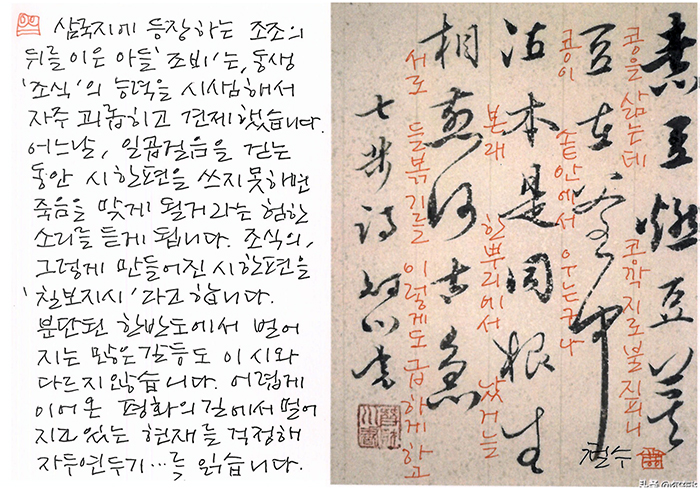 삼국지에 등장하는 조조의
뒤를 이은 아들 '조비'는, 동생
'조식'의 능력을 시샘해서
자주 괴롭히고 견제했습니다.
어느날, 일곱걸음을 걷는
동안 시한편을 쓰지못하면
죽음을 맞게 될거라는 험한
소리를 듣게 됩니다. 조식의,
그렇게 만들어진 시한편을
'칠보지시'라고 합니다.
분단된 한반도에서 벌어
지는 많은갈등도 이 시와
다르지않습니다. 어렵게
이어온 평화의길에서 떨어
지고 있는 현재를 걱정해
자두연두기...를 읽습니다.
煮豆燃豆萁
콩을 삶는데 콩깍지로불 지피니
豆在釜中
콩이 솥안에서 우는구나
泣本是同根生
본래 한뿌리에서 났거늘
相煎何太急
서로 들볶기를 이렇게도 급하게 하고
七步詩
철수